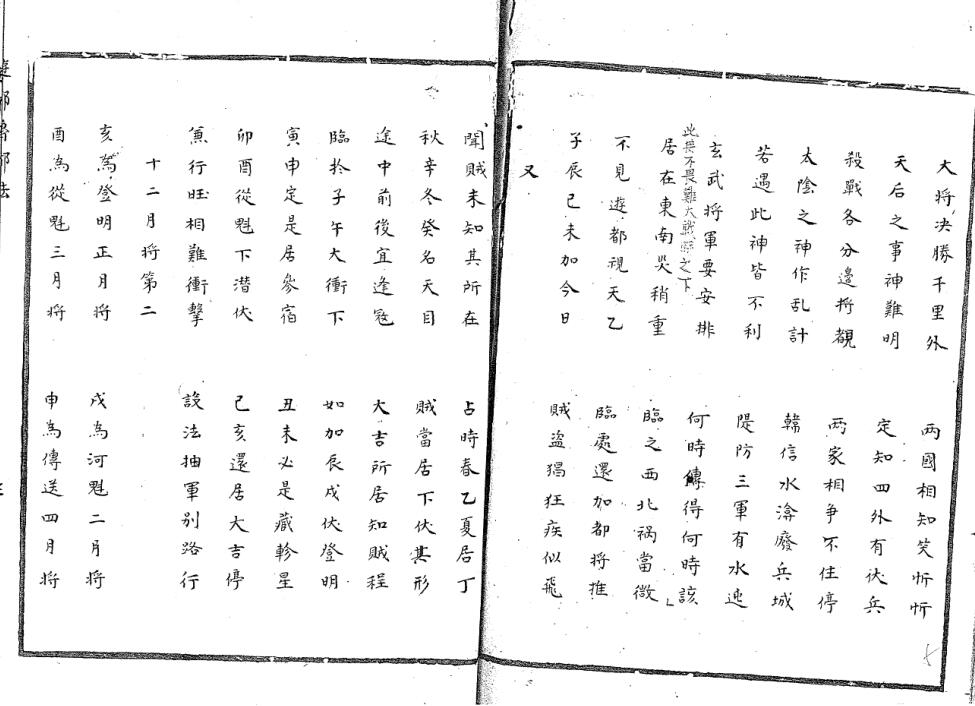 大將决勝千里外　两國相知笑忻忻
天后之事神難明　定知四外有伏兵
殺戰各分邉將覩　两家相争不住停
太陰之神作乱計　韓信水渰廢兵城
若遇此神皆不利　隄防三軍有水迍
玄武将軍要安排　何時傳得何時該
此兵不畏難大戰
居在東南灾稍重　臨之西北祸當微
不見遊都視天乙　臨處還加都将推
子辰巳未加今日　賊盗猖狂疾似飛
又
聞賊未知其所在　占時春乙夏居丁
秋辛冬癸名天目　賊當居下伏其形
途中前後宜逢冦　大吉所居知賊程
臨於子午大衝下　如加辰戍伏登明
寅申定是居參宿　丑未必是藏軫星
卯酉從魁下潜伏　已亥還居大吉停
兼行旺相難衝擊　設法抽軍别路行
十二月将第二
亥為登明正月将　戍為河魁二月将
酉為從魁三月将　申為傳送四月将